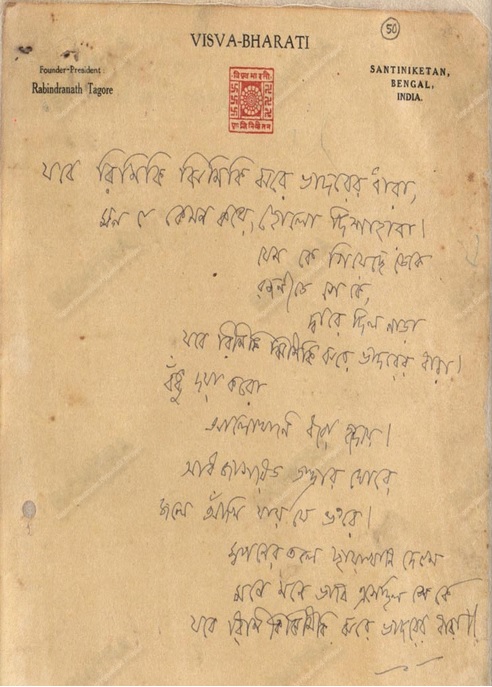 50
VISVA-BHARATI
Founder-President:
Rabindranath Tagore
SANTINIKETAN,
BENGAL,
INDIA.
যবে রিমিকি ঝিমিকি ঝরে ভাদরের ধারা,
মন যে কেমন করে, হোলো দিশাহারা।
যেন কে গিয়েছে ডেকে
রজনীতে সে কে,
দ্বারে দিল নাড়া
যবে রিমিকি ঝিমিকি ঝরে ভাদরের ধারা।
বঁধু দয়া করো
আলোখানি ধরো হৃদয়ে।
আধ জাগরিত তন্দ্রার ঘোরে
জলে আঁখি যায় যে ভরে।
স্বপনের তলে ছায়াখানি দেখে
মনে মনে ভাবি এসেছিল সে কে
যবে রিমিকি ঝিমিকি ঝরে ভাদরের ধারা।।